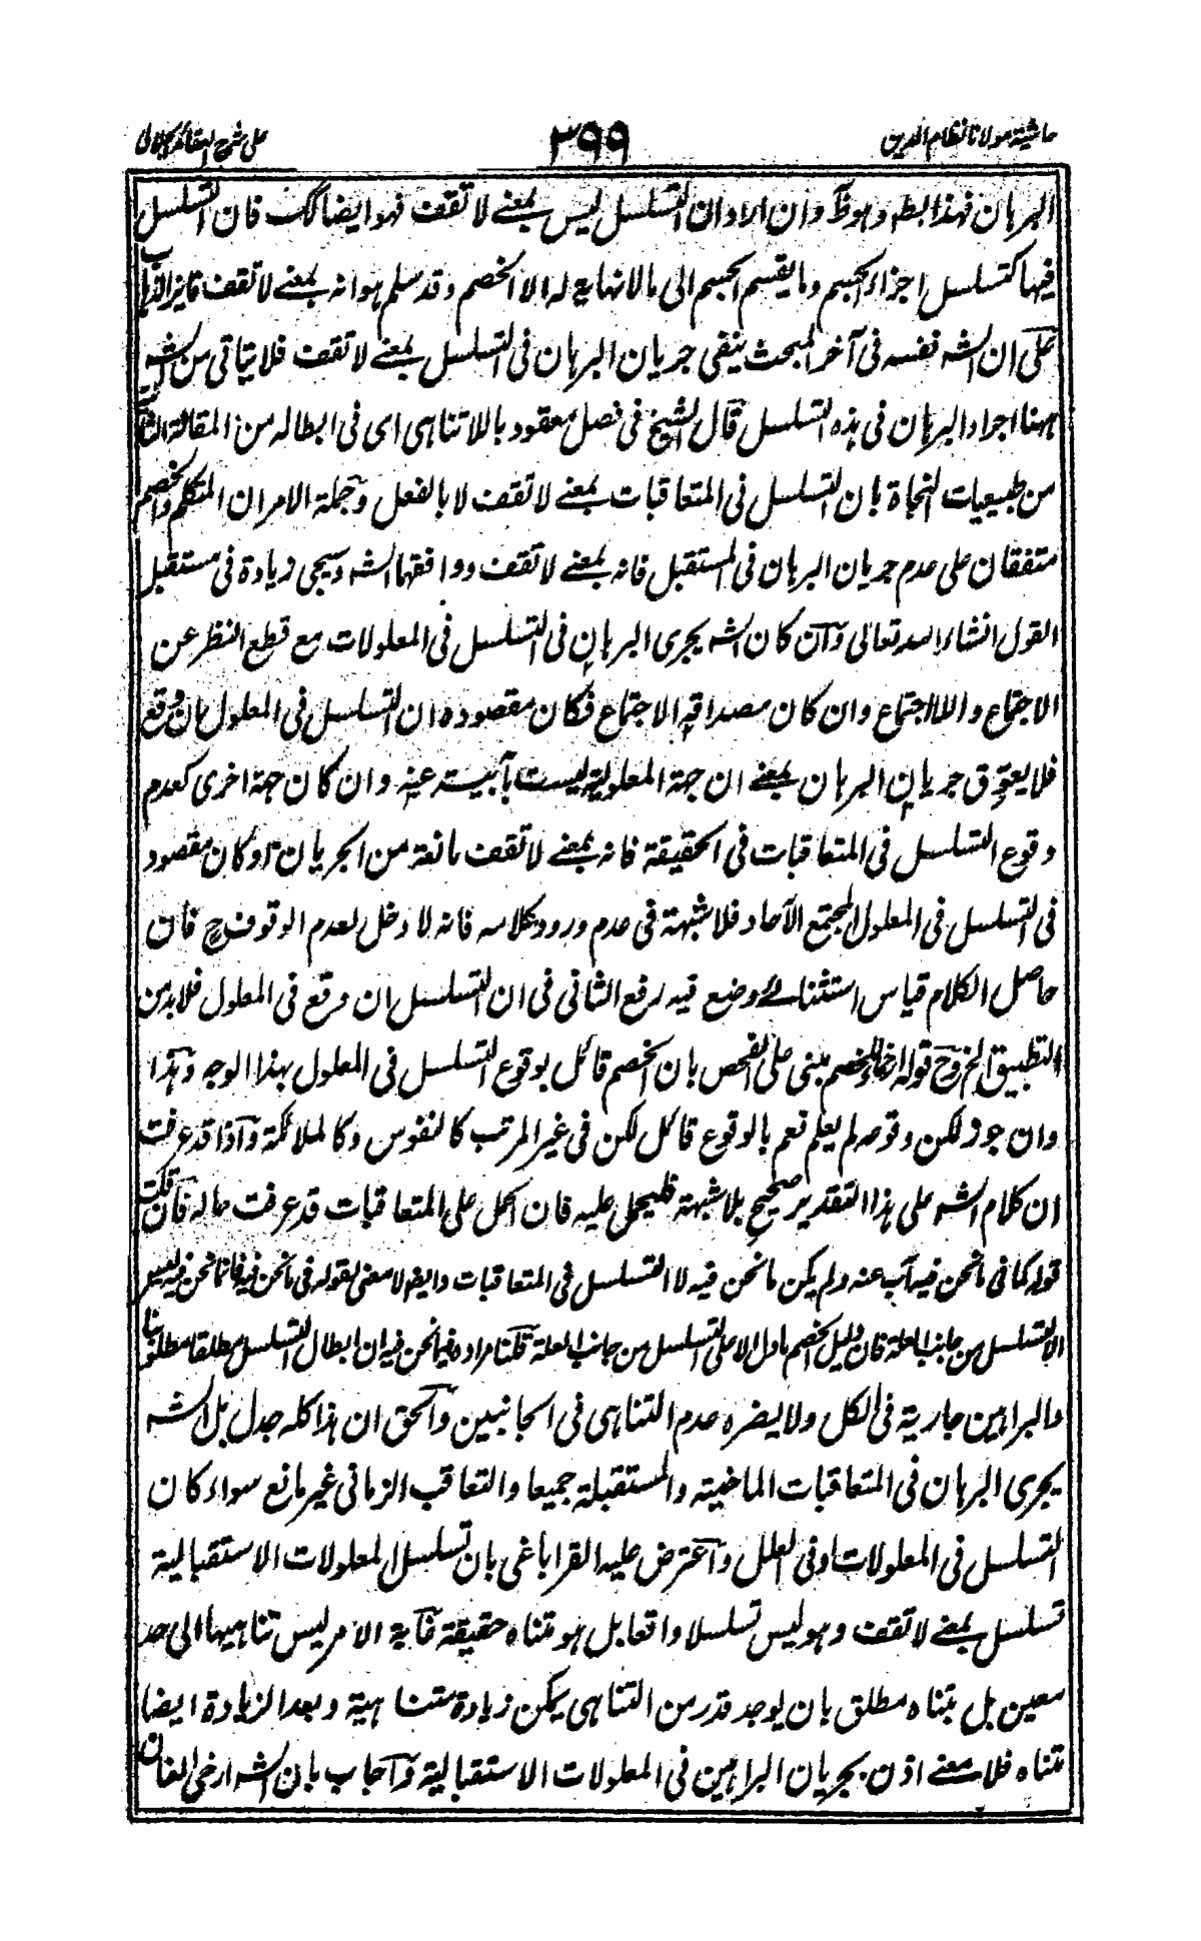 حاشية مولانا نظام الدين
٣٩٩
على شرح العقائد الجلالى
البرهان فهذا ابطه وهو ظ وان اراد ان التسلسل ليس بمعنى لا تقف فهو ايضا كك فان التسلسل
فيها كتسلسل اجزاء الجسم وما يقسم الجسم الى مالا نهاية له الا الخصم وقد سلم هو انه بمعنى لا تقف
على ان الشه نفسه فى آخر المبحث ينفى جريان البرهان فى التسلسل بمعنى لا تقف فلا يتاتى من الشه
ههنا اجراء البرهان فى هذه التسلسل قال الشيخ فى فصل معقود باللاتناهى اى فى ابطاله من المقالة
من طبيعيات النجاة بان التسلسل فى المتعاقبات بمعنى لا تقف لا بالفعل وجملة الامر ان المتكلم والخصم
متفقان على عدم جريان البرهان فى المستقبل فانه بمعنى لا تقف ووافقهما الشه وسيجى زيادة فى مستقبل
القول انشاء الله تعالى وان كان الشه يجرى البرهان فى التسلسل فى المعلولات مع قطع النظر عن
الاجتماع واللااجتماع وان كان مصداقه الاجتماع فكان مقصوده ان التسلسل فى المعلول بان وقع
فلا يعوق جريان البرهان بمعنى ان جهة المعلولية ليست بآبية عنه وان كان جهة اخرى كعدم
وقوع التسلسل فى المتعاقبات فى الحقيقة فانه بمعنى لا تقف مانعة من الجريان او كان مقصوده
فى التسلسل فى المعلول المجتمع الآحاد فلا شبهة فى عدم ورود كلامه فانه لا دخل لعدم الوقوف ح فان
حاصل الكلام قياس استثنائى وضع فيه لرفع الثانى فى ان التسلسل ان وقع فى المعلول فلا بد من
التطبيق الخ وح قوله للخصم مبنى على الفحص بان الخصم قائل بوقوع التسلسل فى المعلول بهذا الوجه وهذا
وان جوز لكن وقوعه لم يعلم نعم بالوقوع قائل لكن فى غير المرتب كالنفوس وكالملائكة واذا قد عرفت
ان كلام الشه على هذا التقدير صحيح بلا شبهة فليحمل عليه فان الحمل على المتعاقبات قد عرفت حاله فان قلت
قوله كما فى ما نحن فيه آب عنه ولم يكن ما نحن فيه لا التسلسل فى المتعاقبات وايضا لا معنى لقوله فى ما نحن فيه فانما نحن فيه ليس
الا التسلسل من جانب العلة فان دليل الخصم ما دل الا على التسلسل من جانب العلة قلنا مراده فيما نحن فيه ان ابطال التسلسل مطلقا مطلوبنا
والبراهين جارية فى الكل ولا يضره عدم التناهى فى الجانبين والحق ان هذا كله جدل بل الشه
يجرى البرهان فى المتعاقبات الماضية والمستقبلة جميعا والتعاقب الزمانى غير مانع سواء كان
التسلسل فى المعلولات اوفى العلل واعترض عليه القراباغى بان تسلسل المعلولات الاستقبالية
تسلسل بمعنى لا تقف وهو ليس تسلسلا واقعا بل هو متناه حقيقة غاية الامر ليس تناهيها الى حد
معين بل بتناه مطلق بان يوجد قدر من التناهى يمكن زيادة متناهية وبعد الزيادة ايضا
متناه فلا معنى اذن بجريان البراهين فى المعلولات الاستقبالية واجاب بان الشه ارخى العنان